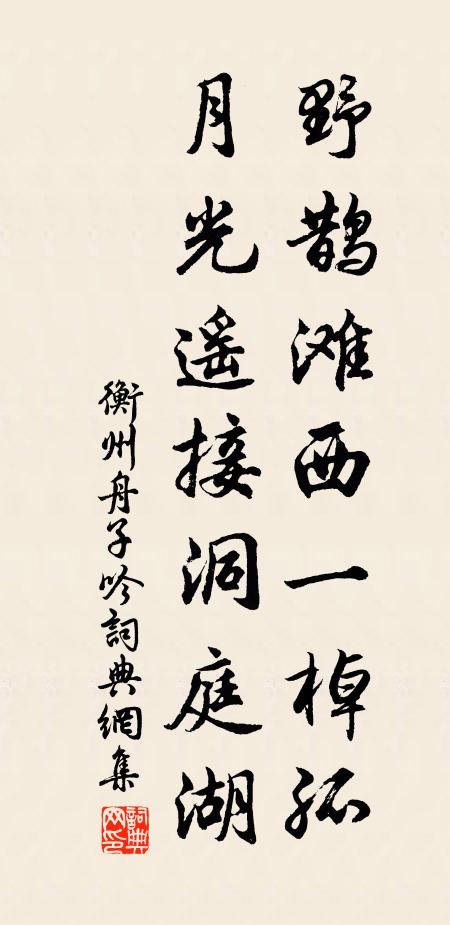 野鹊滩西一棹孤
月光遥接洞庭湖
衡州舟子吟詞典網集
詞典网印